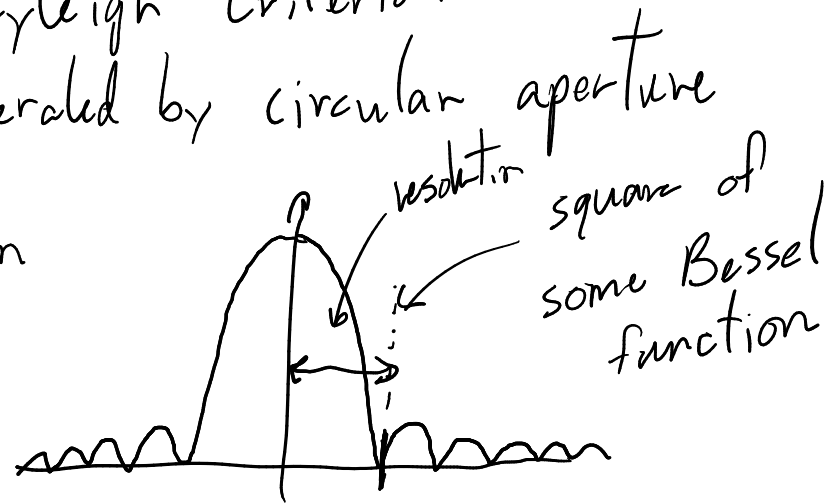 yleigh criterio
erated by circular aperture
resolution
square of
n
some Bessel
function